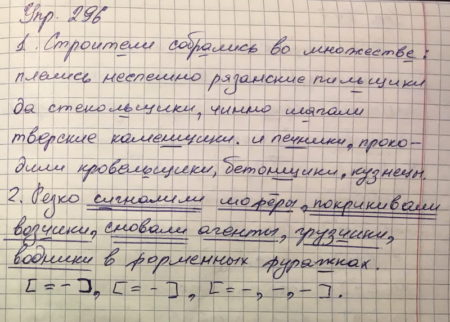 Упр. 296
1. Строители собрались во множестве:
плелись неспешно рязанские пильщики
да стекольщики, чинно шагали
тверские каменщики. и печники, прохо-
дили кровельщики, бетонщики, кузнецы.
2. Резко сигналили шофёры, покрикивали
возчики, сновали агенты, грузчики,
водники в форменных фуражках.
[= -], [= -], [= -, -, -].